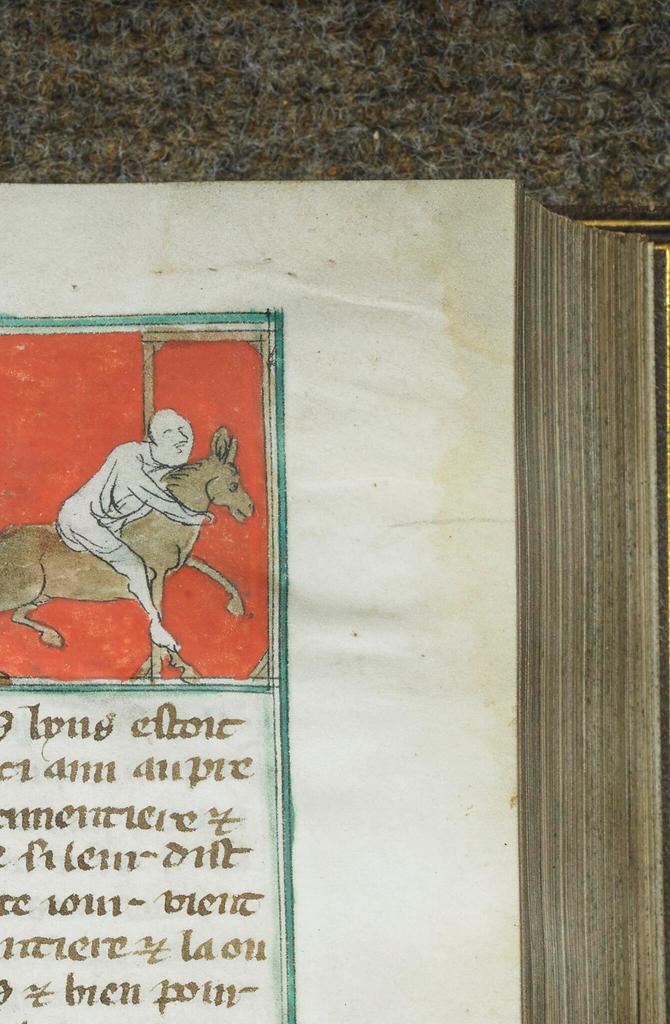 lyus estoit
ci ann aupre
timentiere ⁊
si leur dist
te iour vient
ntiere ⁊ la ou
⁊ bien pour